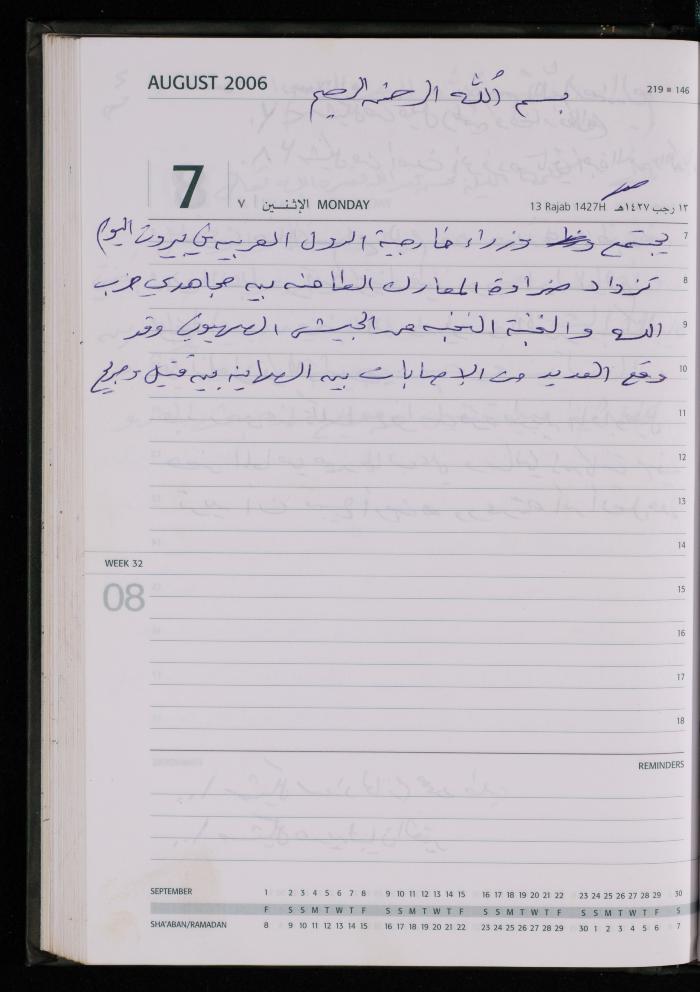 AUGUST 2006
بسم الله الرحمن الرحيم
219 ■ 146
7
٧ الإثنـــين MONDAY
13 Rajab 1427H ١٣ رجب ١٤٢٧هـ
7
يجتمع وزراء خارجية الدول العربيه في بيروت اليوم
8
تزداد ضراوة المعارك الطاحنه بين مجاهدي حزب
9
الله و النخبه من الجيش الصهيوني وقد
10
وقع العديد من الاصابات بين الصهاينه بين قتيل وجريح
11
12
13
14
WEEK 32
08
15
16
17
18
REMINDERS
SEPTEMBER 1 2 3 4 5 6 7 8 9 10 11 12 13 14 15 16 17 18 19 20 21 22 23 24 25 26 27 28 29 30
F S S M T W T F S S M T W T F S S M T W T F S S M T W T F S
SHA'ABAN/RAMADAN 8 9 10 11 12 13 14 15 16 17 18 19 20 21 22 23 24 25 26 27 28 29 30 1 2 3 4 5 6 7